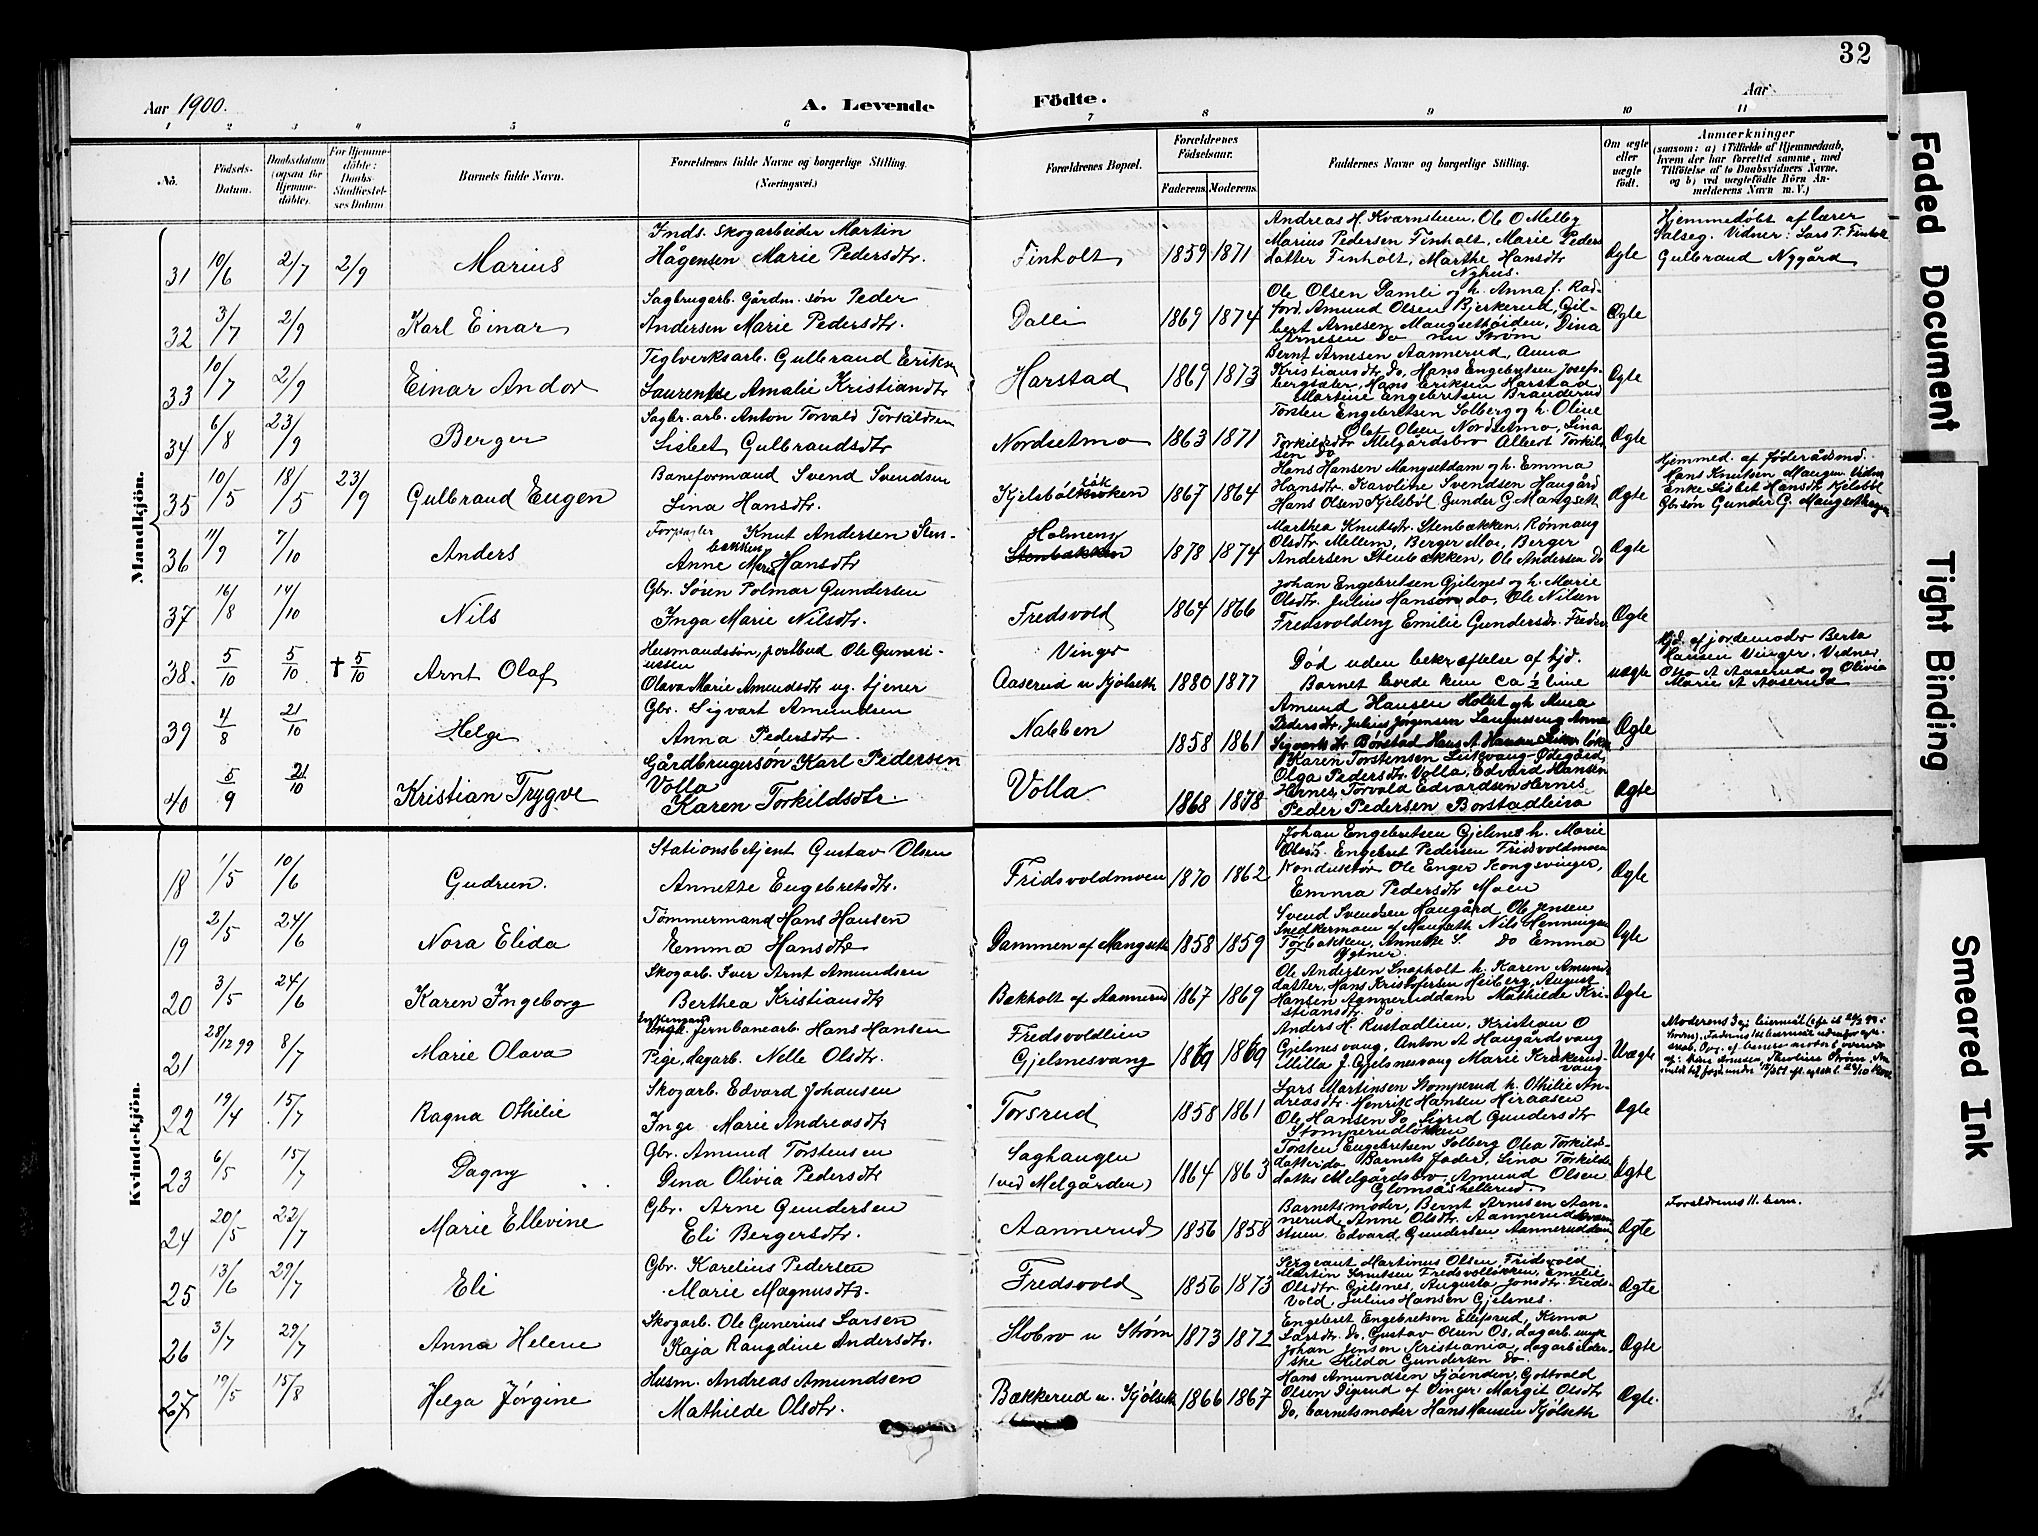 32
Aar 1900. A. Levende Födte. Aar
1 2 3 4 5 6 7 8 9 10 11
No. Födsels-Datum. Daabsdatum (ogsaa for Hjemme-döbte). For Hjemme-döbte: Daabs-Stadfæstel-ses Datum Barnets fulde Navn. Forældrenes fulde Navne og borgerlige Stilling. (Næringsvei.) Forældrenes Bopæl. Forældrenes Födselsaar. Faderens. Moderens. Faddernes Navne og borgerlige Stilling. Om ægte eller uægte født. Anmærkninger (saasom: a) i Tilfælde af Hjemmedaab, hvem der har forrettet samme, med Tilföielse af to Daabsvidners Navne, og b) ved uægtefödte Börn Anmelderens Navn m. V.)
Mandkjön.
31 10/6 2/7 2/9 Marius Inds. Skogarbeider Martin Hågensen Marie Pedersdtr. Finholt 1859 1871 Andreas H. Kværnstuen, Ole O Melby Marius Pedersen Finholt, Marie Pedersdatter Finholt, Marthe Hansdtr Nyhus. Ægte Hjemmedøbt af lærer Salseg. Vidner: Lars P. Finholt Gulbrand Nygård
32 3/7 2/9 Karl Einar Sagbrugarb. Gårdm. søn Peder Andersen Marie Pedersdtr. Dalli 1869 1874 Ole Olsen Damli og h. Anna f. Radford. Amund Olsen Bjerkerud, Gilbert Arnesen Mangsethøiden, Dina Arnesen Do nu Strøm Ægte
33 10/7 2/9 Einar Andor Teglverksarb. Gulbrand Eriksen Laurentse Amalie Kristiansdtr Harstad 1869 1873 Bernt Arnesen Aannerud, Anna Kristiansdtr do, Hans Engebretsen Josefsbergsæter, Hans Eriksen Harstad, Martine Engebretsen Branderud Ægte
34 6/8 23/9 Berger Sagbr. arb. Anton Torvald Torkildsen Lisbet Gulbrandsdtr Nordsetmo 1863 1871 Torsten Engebretsen Solberg og h. Oline Olaf Olsen Nordsetmo, Lina Torkildsdtr Melgårdsbro Albert Torkildsen do Ægte
35 10/5 18/5 23/9 Gulbrand Eugen Baneformand Svend Svendsen Lina Hansdtr. Kjelsbøl 1867 1864 Hans Hansen Mangsetdam og h. Emma Hansdtr. Karoline Svendsen Haugård Hans Olsen Kjelsbøl Gunder G. Mangseth Ægte Hjemmed. af Føderådsmd. Hans Knutsen Maugen Vidner Enke Lisbet Hansdtr Kjelsbøl Gbr.søn Gunder G. Mangseth
36 11/9 7/10 Anders Forpagter Knut Andersen Stenbækken Anne Marie Hansdtr Holmeng Stenbækken 1878 1874 Marthea Knutsdtr. Stenbækken, Rønnaug Olsdtr. Mellem, Berger Moe, Berger Andersen Stenbækken, Ole Andersen Do Ægte
37 16/8 14/10 Nils Gbr. Søren Polmar Gundersen Inga Marie Nilsdtr. Fredsvold 1864 1866 Johan Engebretsen Gjelsnes og h. Marie Olsdtr. Julius Hansen do, Ole Nilsen Fredsvoldeng Emilie Gundersdtr. Fredsv. Ægte
38. 5/10 5/10 † 5/10 Arnt Olaf Husmandssøn, postbud Ole Guneriussen Olava Marie Amundsdtr ug. tjener Vinger Aaserud u Kjølseth 1880 1877 Død uden bekræftelse af hjd. Barnet levede kun ca ½ time uægte Hjd. af jordemoder Berta Hansen Vinger. Vidner Otto A Aaserud og Olivia Marie A Aaserud
39 4/8 21/10 Helge Gbr. Sigvart Amundsen Anna Pedersdtr. Nabben 1858 1861 Amund Hansen Holtet og h. Pedersdtr, Julius Jørgensen Anna Sigvartsdtr Børstad Hans A Hansen Ægte
40 5/9 21/10 Kristian Trygve Gårdbrugersøn Karl Pedersen Volla Karen Torkildsdtr. Volla 1868 1878 Karen Torstensen Ødegård, Olga Pedersdtr. Volla, Edvard Hansen Hernes, Torvald Edvardsen Hernes Peder Pedersen Borstadleira Ægte
Kvindekjön.
18 1/5 10/6 Gudrun. Stationsbetjent Gustav Olsen Annette Engebretsdtr. Fridsvoldmoen 1870 1862 Johan Engebretsen Gjelsnes h. Marie Olsdtr. Engebret Pedersen Fridsvoldmoen Konduktør Ole Enger Kongsvinger, Emma Pedersdtr Moen Ægte
19 2/5 24/6 Nora Elida Tømmermand Hans Hansen Emma Hansdtr Dammen af Mangseth 1858 1859 Svend Svendsen Haugård Ole Jensen Snedkermoen af Mangseth Nils Henningsen Torbakken, Annette S. do Emma Ægte
20 3/5 24/6 Karen Ingeborg Skogarb. Iver Arnt Amundsen Berthea Kristiansdtr Bakholt af Aannerud 1867 1869 Ole Andersen Snapholt h. Karen Amundsdatter, Hans Kristofersen Heiberg, August Hansen Aanneruddam Mathilde Kristiansdtr. do. Ægte
21 28/12 99 8/7 Marie Olava Jernbanearb. Hans Hansen Pige, dagarb. Nelle Olsdtr. Fredsvoldlien Gjelsnesvang 1869 1869 Anders H. Rustadlien, Kristian O Gjelsnesvang, Anton A Haugårdsvang Milla J. Gjelsnesvang Marie Krakerudvang Uægte
22 19/4 15/7 Ragna Othilie Skogarb. Edvard Johansen Inge Marie Andreasdtr Torsrud 1858 1861 Lars Martinsen Stomperud h. Othilie Andreasdtr. Henrik Hansen Hiraasen Ole Hansen Do Sigrid Gundersdtr Stomperudløkken Ægte
23 6/5 15/7 Dagny Gbr. Amund Torstensen Dina Olivia Pedersdtr Saghaugen (ved Melgården) 1864 1863 Torsten Engebretsen Solberg Olea Torkildsdatter do Barnets fader, Lina Torkildsdatter Melgårdsbro, Amund Olsen Glomsåshellerud. Ægte
24 20/5 22/7 Marie Ellevine Gbr. Arne Gundersen Eli Bergersdtr. Aannerud 1856 1858 Barnetsmoder, Bernt Arnesen Aannerud, Anne Olsdtr. Aannerud Kværnstuen. Edvard Gundersen Aanneruddam Ægte Forældrenes 11. barn.
25 13/6 29/7 Eli Gbr. Karelius Pedersen Marie Magnusdtr. Fredsvold 1856 1873 Sergeant Martinus Olsen, Fridsvold Martin Knutsen Fredsvoldløkken, Emelie Olsdtr. Gjelsnes, Augusta Jonsdtr. Fredsvold, Julius Hansen Gjelsnes. Ægte
26 3/7 29/7 Anna Helene Skogarb. Ole Gunerius Larsen Kaja Raugdine Andersdtr. Slobro u Strøm 1873 1872 Engebret Engebretsen Ellefsrud, Kinna Larsdtr. do, Gustav Olsen Os, dagarb. Johan Jensen Kristiania, dagarbeiderske Hilda Gundersen do. Ægte
27 19/5 15/8 Helga Jørgine Husm. Andreas Amundsen Mathilde Olsdtr. Bækkerud u. Kjølseth 1866 1867 Hans Amundsen Sjøenden, Gottvald Olsen Digerud af Vinger, Margit Olsdtr Do, barnetsmoder Hans Hansen Kjølseth Ægte.
Faded Document
Tight Binding
Smeared Ink